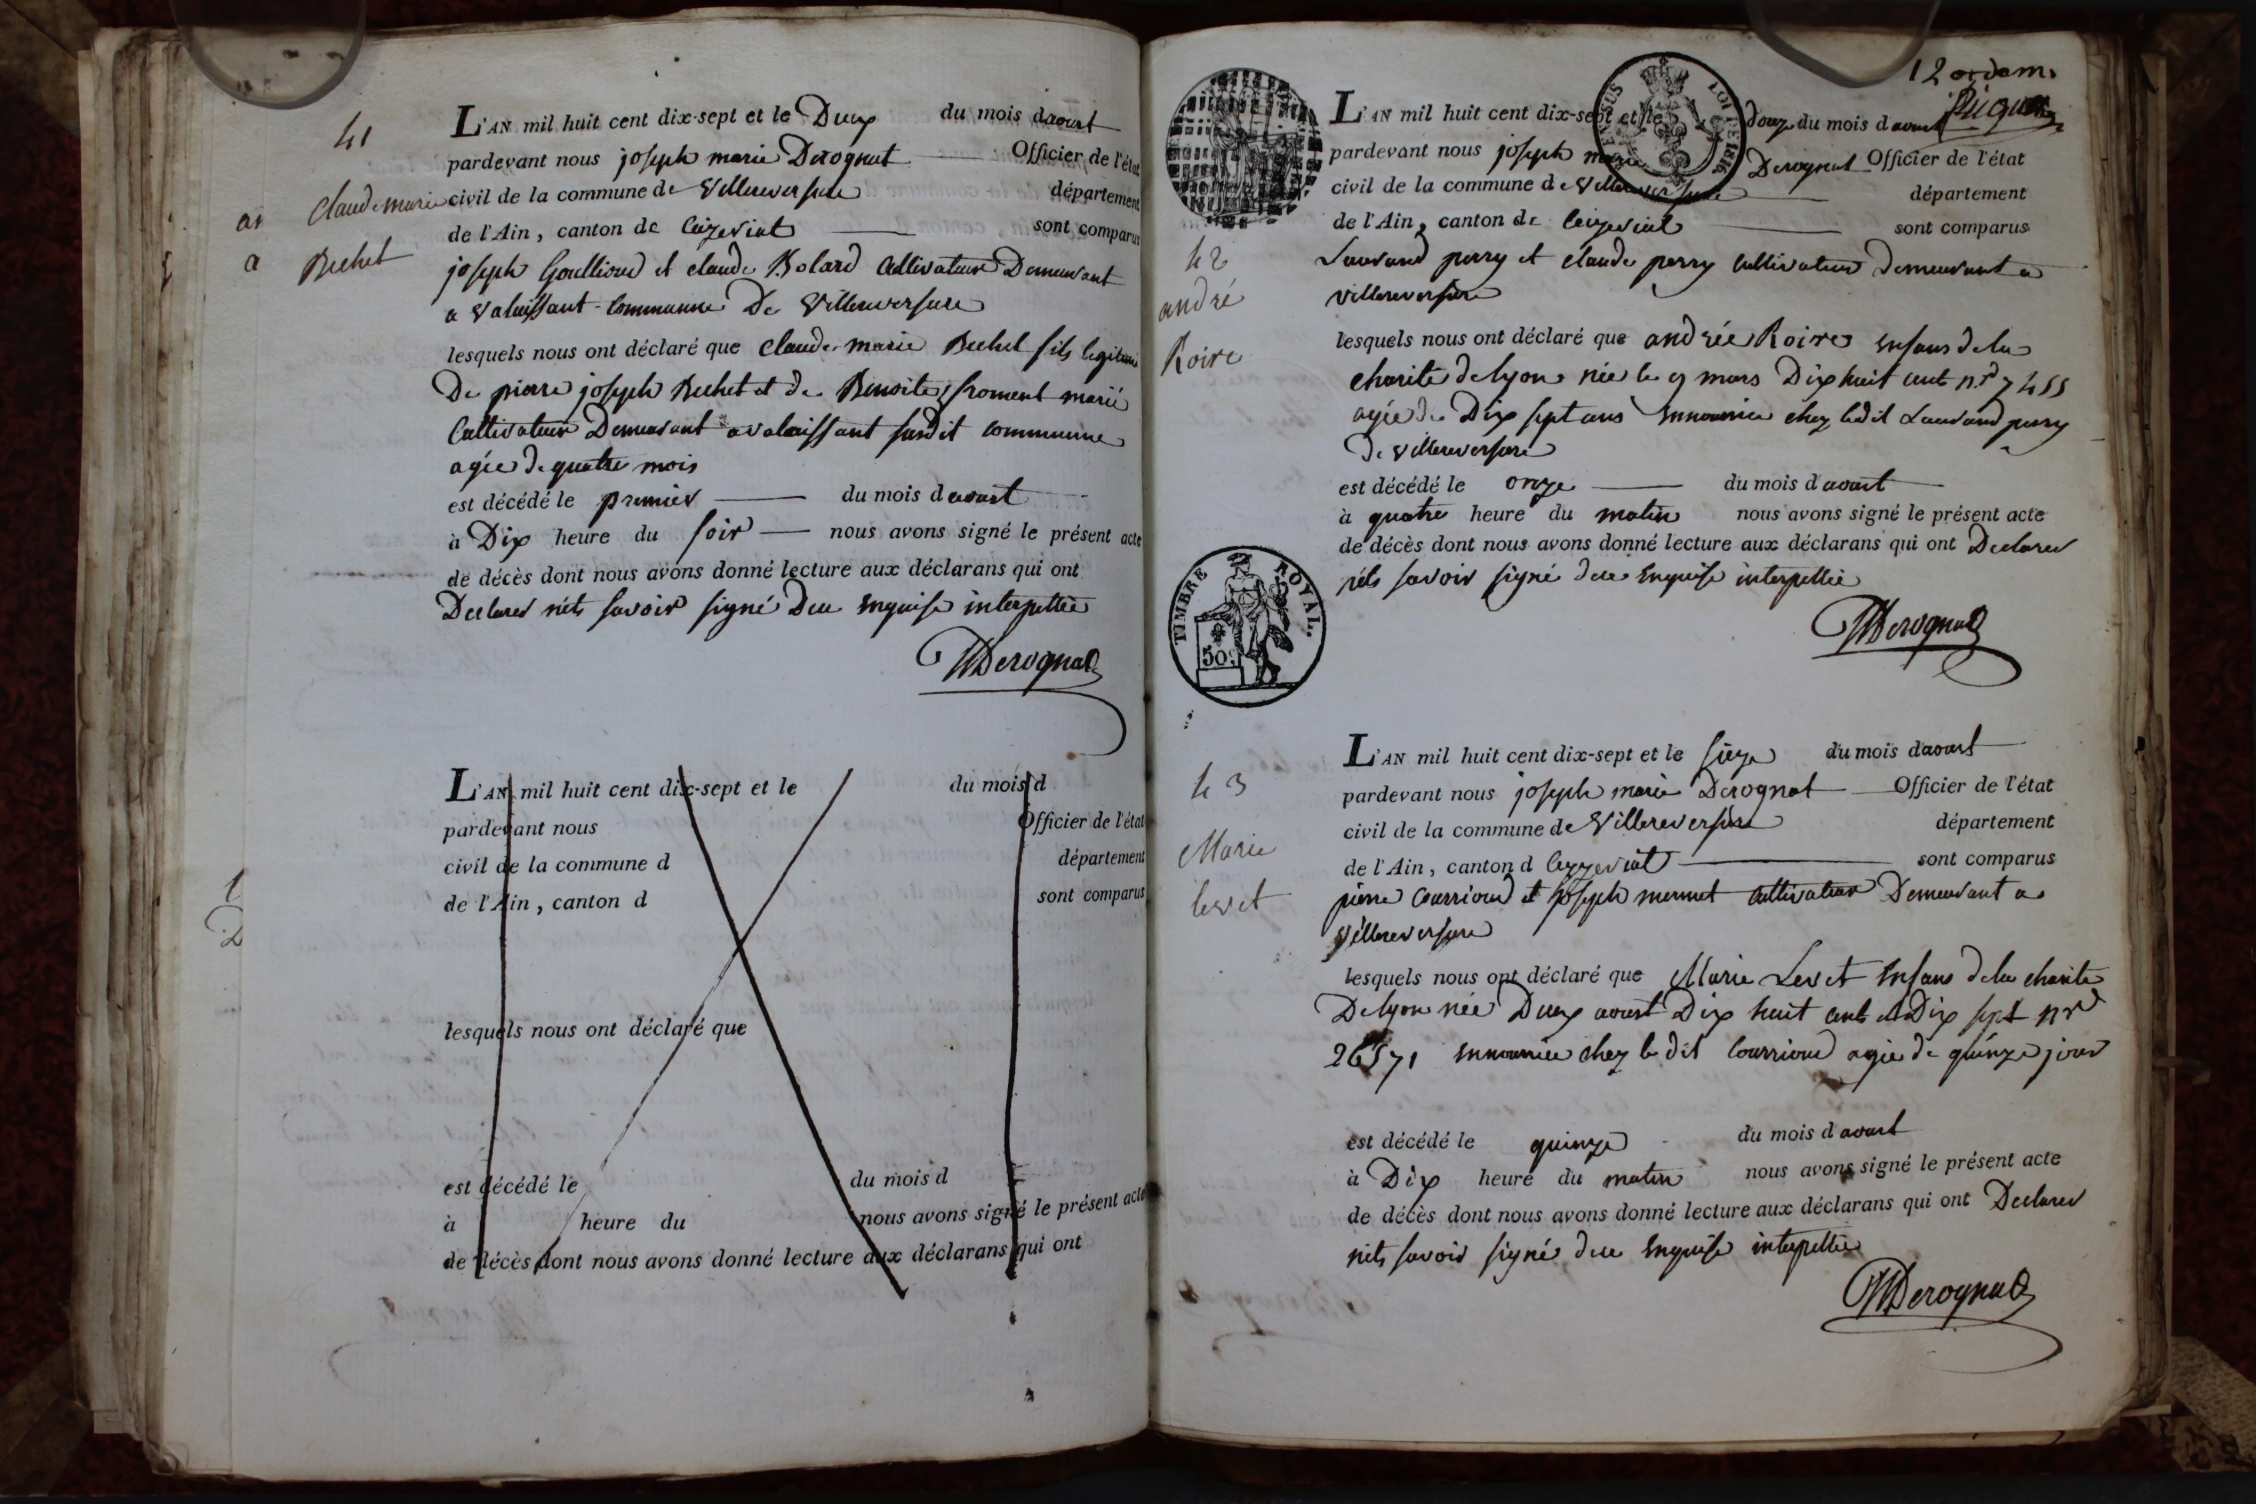 41
Claude marie
Bechet
L'AN mil huit cent dix-sept et le Deux du mois daoust
pardevant nous joseph marie Derognat Officier de l'état
civil de la commune de Villereversure département
de l'Ain, canton de Ceizeriat sont comparus
joseph Goullioud et claude Bolard Cultivateur Demeurant
a Valaissant Commune De Villereversure
lesquels nous ont déclaré que Claude marie Bechet fils legitime
De pierre joseph Bechet et de Benoite froment marié
Cultivateur Demeurant a valaissant susdit commune
agée de quatre mois
est décédé le premier du mois daoust
à Dix heure du soir nous avons signé le présent acte
de décès dont nous avons donné lecture aux déclarans qui ont
Declarer nêts savoir signé Deu Enquise interpellée
Derognat
L'AN mil huit cent dix-sept et le du mois d
pardevant nous Officier de l'état
civil de la commune d département
de l'Ain, canton d sont comparus
lesquels nous ont déclaré que
est décédé le du mois d
à heure du nous avons signé le présent acte
de décès dont nous avons donné lecture aux déclarans qui ont
12
LOI DE 1816
42
andré
Roire
L'AN mil huit cent dix-sept et le douze du mois daoust
pardevant nous joseph marie Derognat Officier de l'état
civil de la commune de Villereversure département
de l'Ain, canton de Ceizeriat sont comparus
Laurand perry et claude perry Cultivateur Demeurant a
villereversure
lesquels nous ont déclaré que andrée Roire Enfans dela
charite de lyon née le 9 mars Dix huit cent nrd 7455
agée de Dix sept ans Ennourrice chez ledit Laurand perry
De villereversure
est décédé le onze du mois daoust
à quatre heure du matin nous avons signé le présent acte
de décès dont nous avons donné lecture aux déclarans qui ont Declarer
nêts savoir signé deu Enquise interpellée
Derognat
TIMBRE ROYAL.
50c
43
Marie
levet
L'AN mil huit cent dix-sept et le sieze du mois daoust
pardevant nous joseph marie Derognat Officier de l'état
civil de la commune de Villereversure département
de l'Ain, canton d Ceyzeriat sont comparus
pierre Courrioud et joseph mermet Cultivateur Demeurant a
Villereversure
lesquels nous ont déclaré que Marie Levet Enfans dela charite
De lyon née Deux aoust Dix huit cent et Dix sept nrd
26571 Ennourrice chez le dit Courrioud agée de quinze jour
est décédé le quinze du mois daoust
à Dix heure du matin nous avons signé le présent acte
de décès dont nous avons donné lecture aux déclarans qui ont Declarer
nêts savoir signé deu Enquise interpellée
Derognat